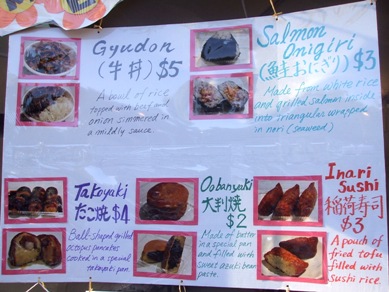 Gyudon
(牛丼) $5
A bowl of rice
topped with beef and
onion simmered in
a mildly sauce
Salmon
Onigiri
(鮭おにぎり) $3
Made from white rice
and grilled salmon inside
into triangular wrapped
in nori (seaweed)
Takoyaki
たこ焼 $4
Ball-shaped grilled
octopus pancakes
cooked in a special
takoyaki pan.
Oobanyaki
大判焼
$2
Made of batter
in a special pan
and filled with
sweet azuki bean
paste.
Inari
Sushi
稲荷寿司
$3
A pouch of
fried tofu
filled with
Sushi rice